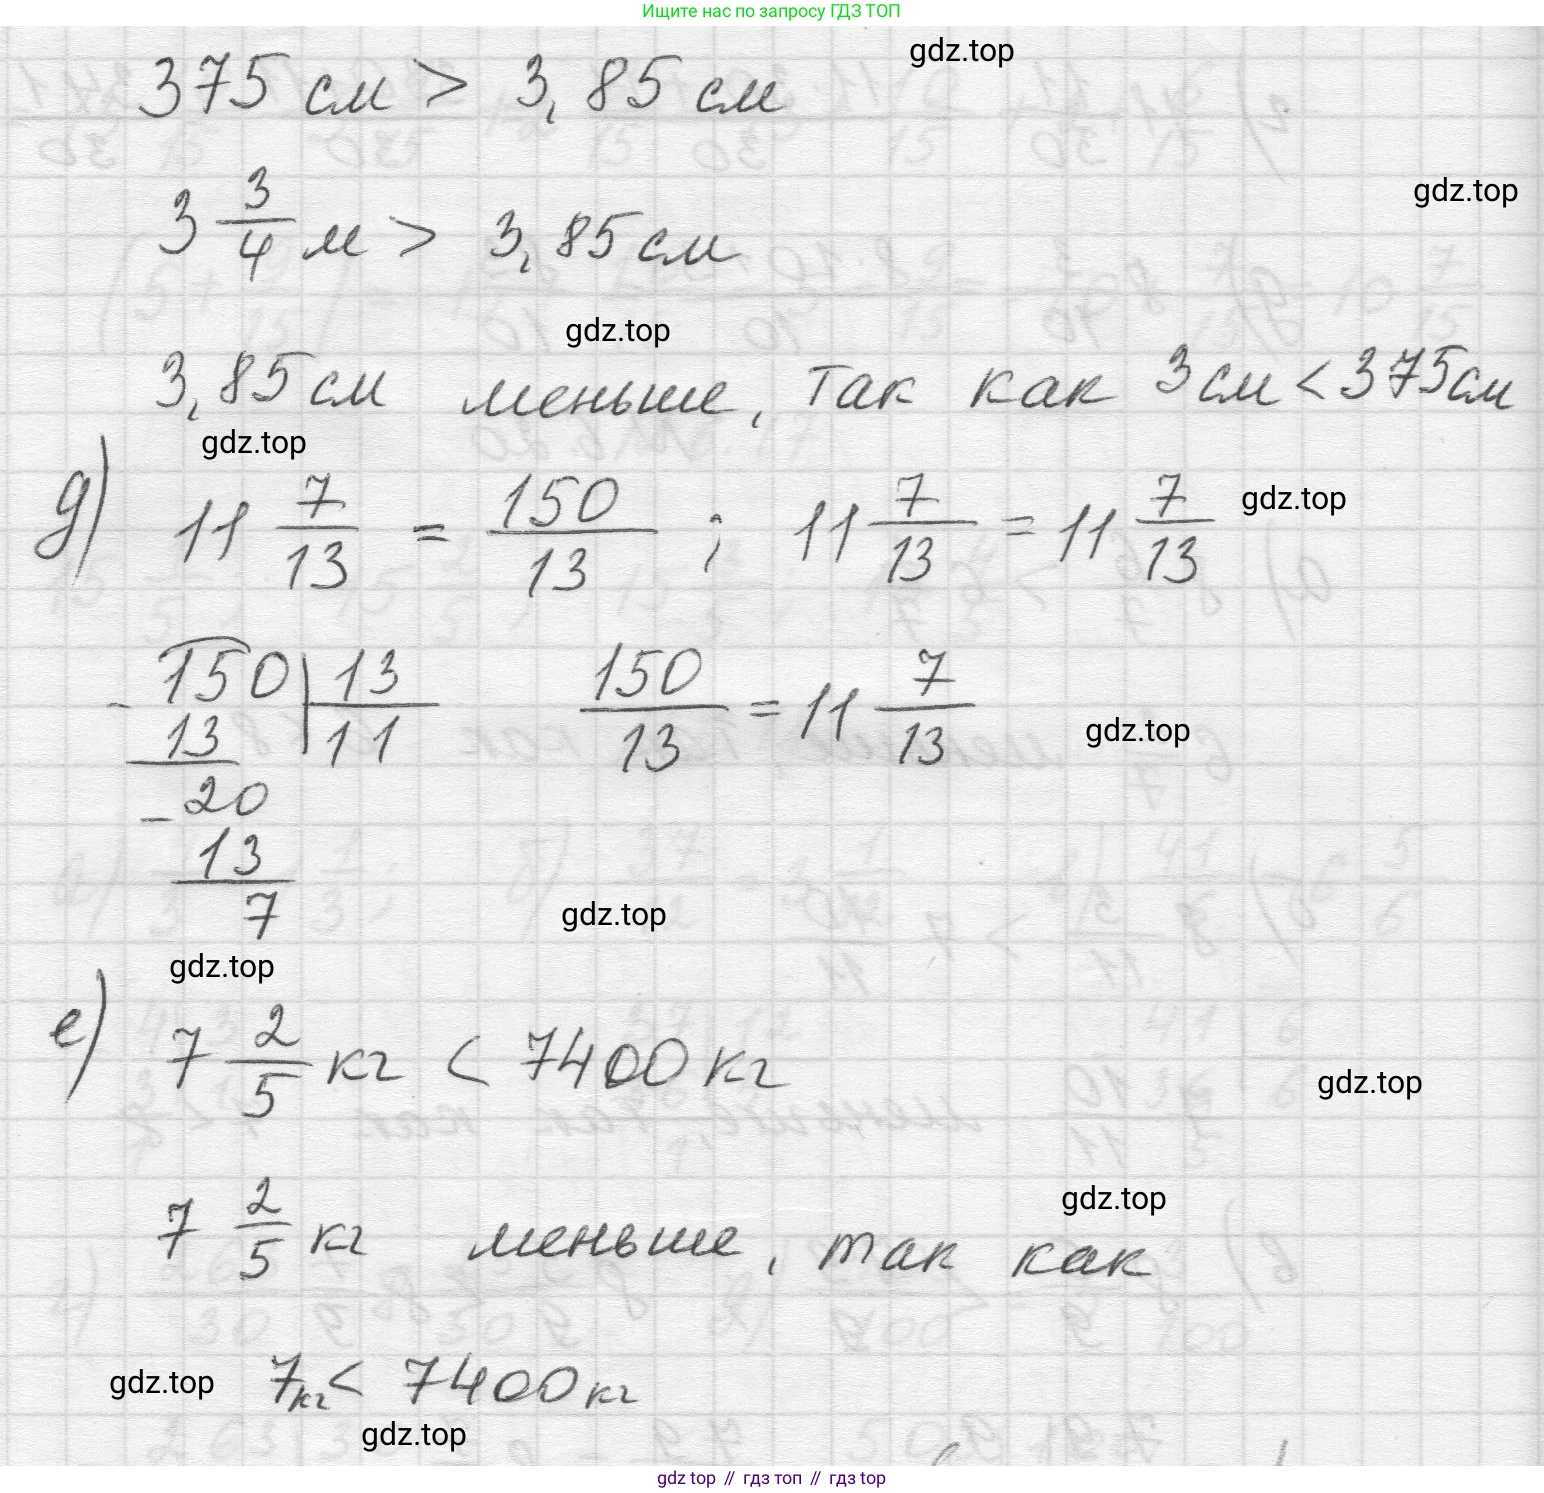 Ищите нас по запросу ГДЗ ТОП
375 см > 3,85 см
gdz.top
3 3/4 м > 3,85 см
gdz.top
gdz.top
3,85 см меньше, так как 3 см < 375 см
gdz.top
д) 11 7/13 = 150/13 ; 11 7/13 = 11 7/13
gdz.top
- 150 | 13
13 | 11
150/13 = 11 7/13
gdz.top
- 20
13
7
gdz.top
gdz.top
е) 7 2/5 кг < 7400 кг
gdz.top
gdz.top
7 2/5 кг меньше, так как
gdz.top
7 кг < 7400 кг
gdz.top
gdz top // гдз топ // гдз top